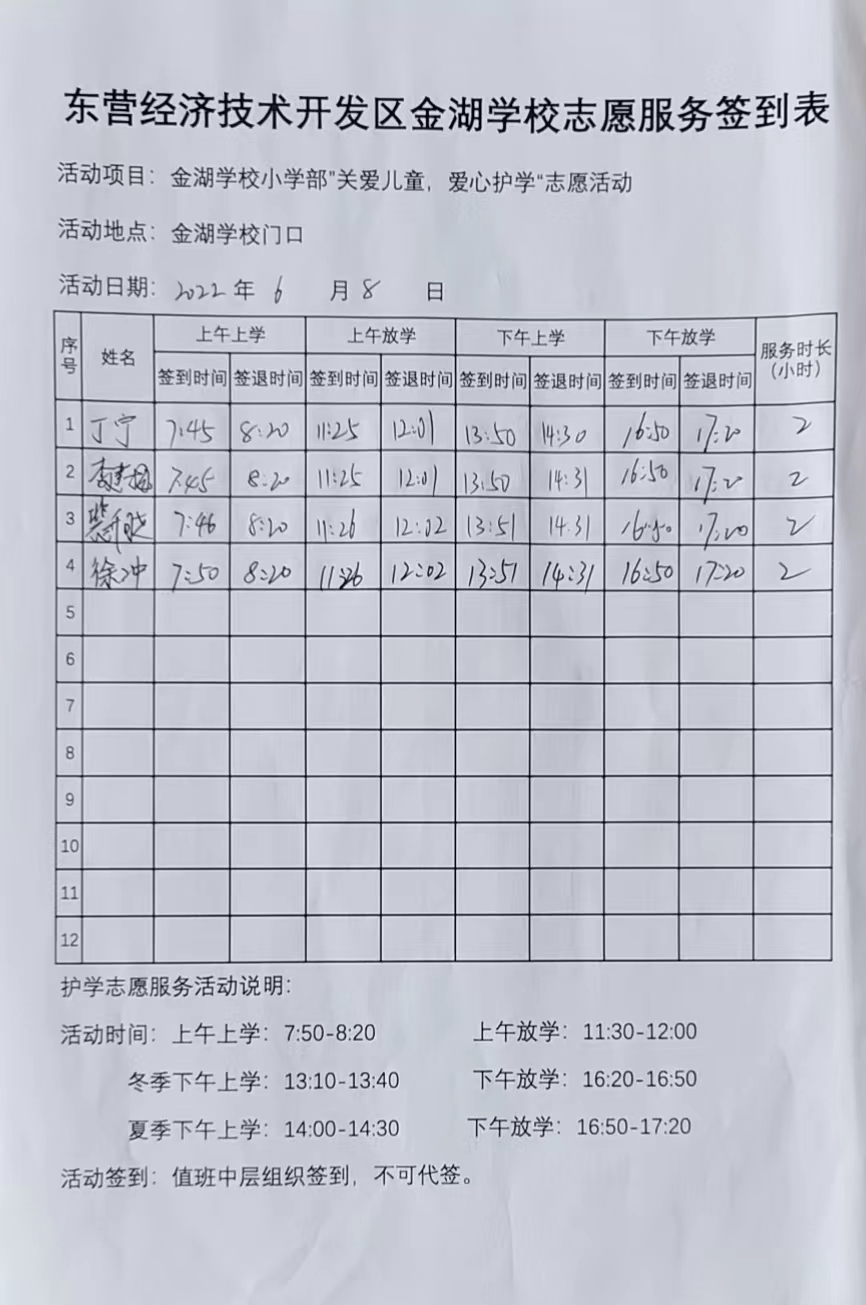 东营经济技术开发区金湖学校志愿服务签到表
活动项目：金湖学校小学部"关爱儿童，爱心护学“志愿活动
活动地点：金湖学校门口
活动日期：2022 年 6 月 8 日
序号 姓名 上午上学 上午放学 下午上学 下午放学 服务时长（小时）
签到时间 签退时间 签到时间 签退时间 签到时间 签退时间 签到时间 签退时间
1 丁宁 7:45 8:20 11:25 12:01 13:50 14:30 16:50 17:20 2
2 7:45 8:20 11:25 12:01 13:50 14:31 16:50 17:20 2
3 7:46 8:20 11:26 12:02 13:51 14:31 16:50 17:20 2
4 徐冲 7:50 8:20 11:26 12:02 13:51 14:31 16:50 17:20 2
5
6
7
8
9
10
11
12
护学志愿服务活动说明：
活动时间：上午上学：7:50-8:20 上午放学：11:30-12:00
冬季下午上学：13:10-13:40 下午放学：16:20-16:50
夏季下午上学：14:00-14:30 下午放学：16:50-17:20
活动签到：值班中层组织签到，不可代签。